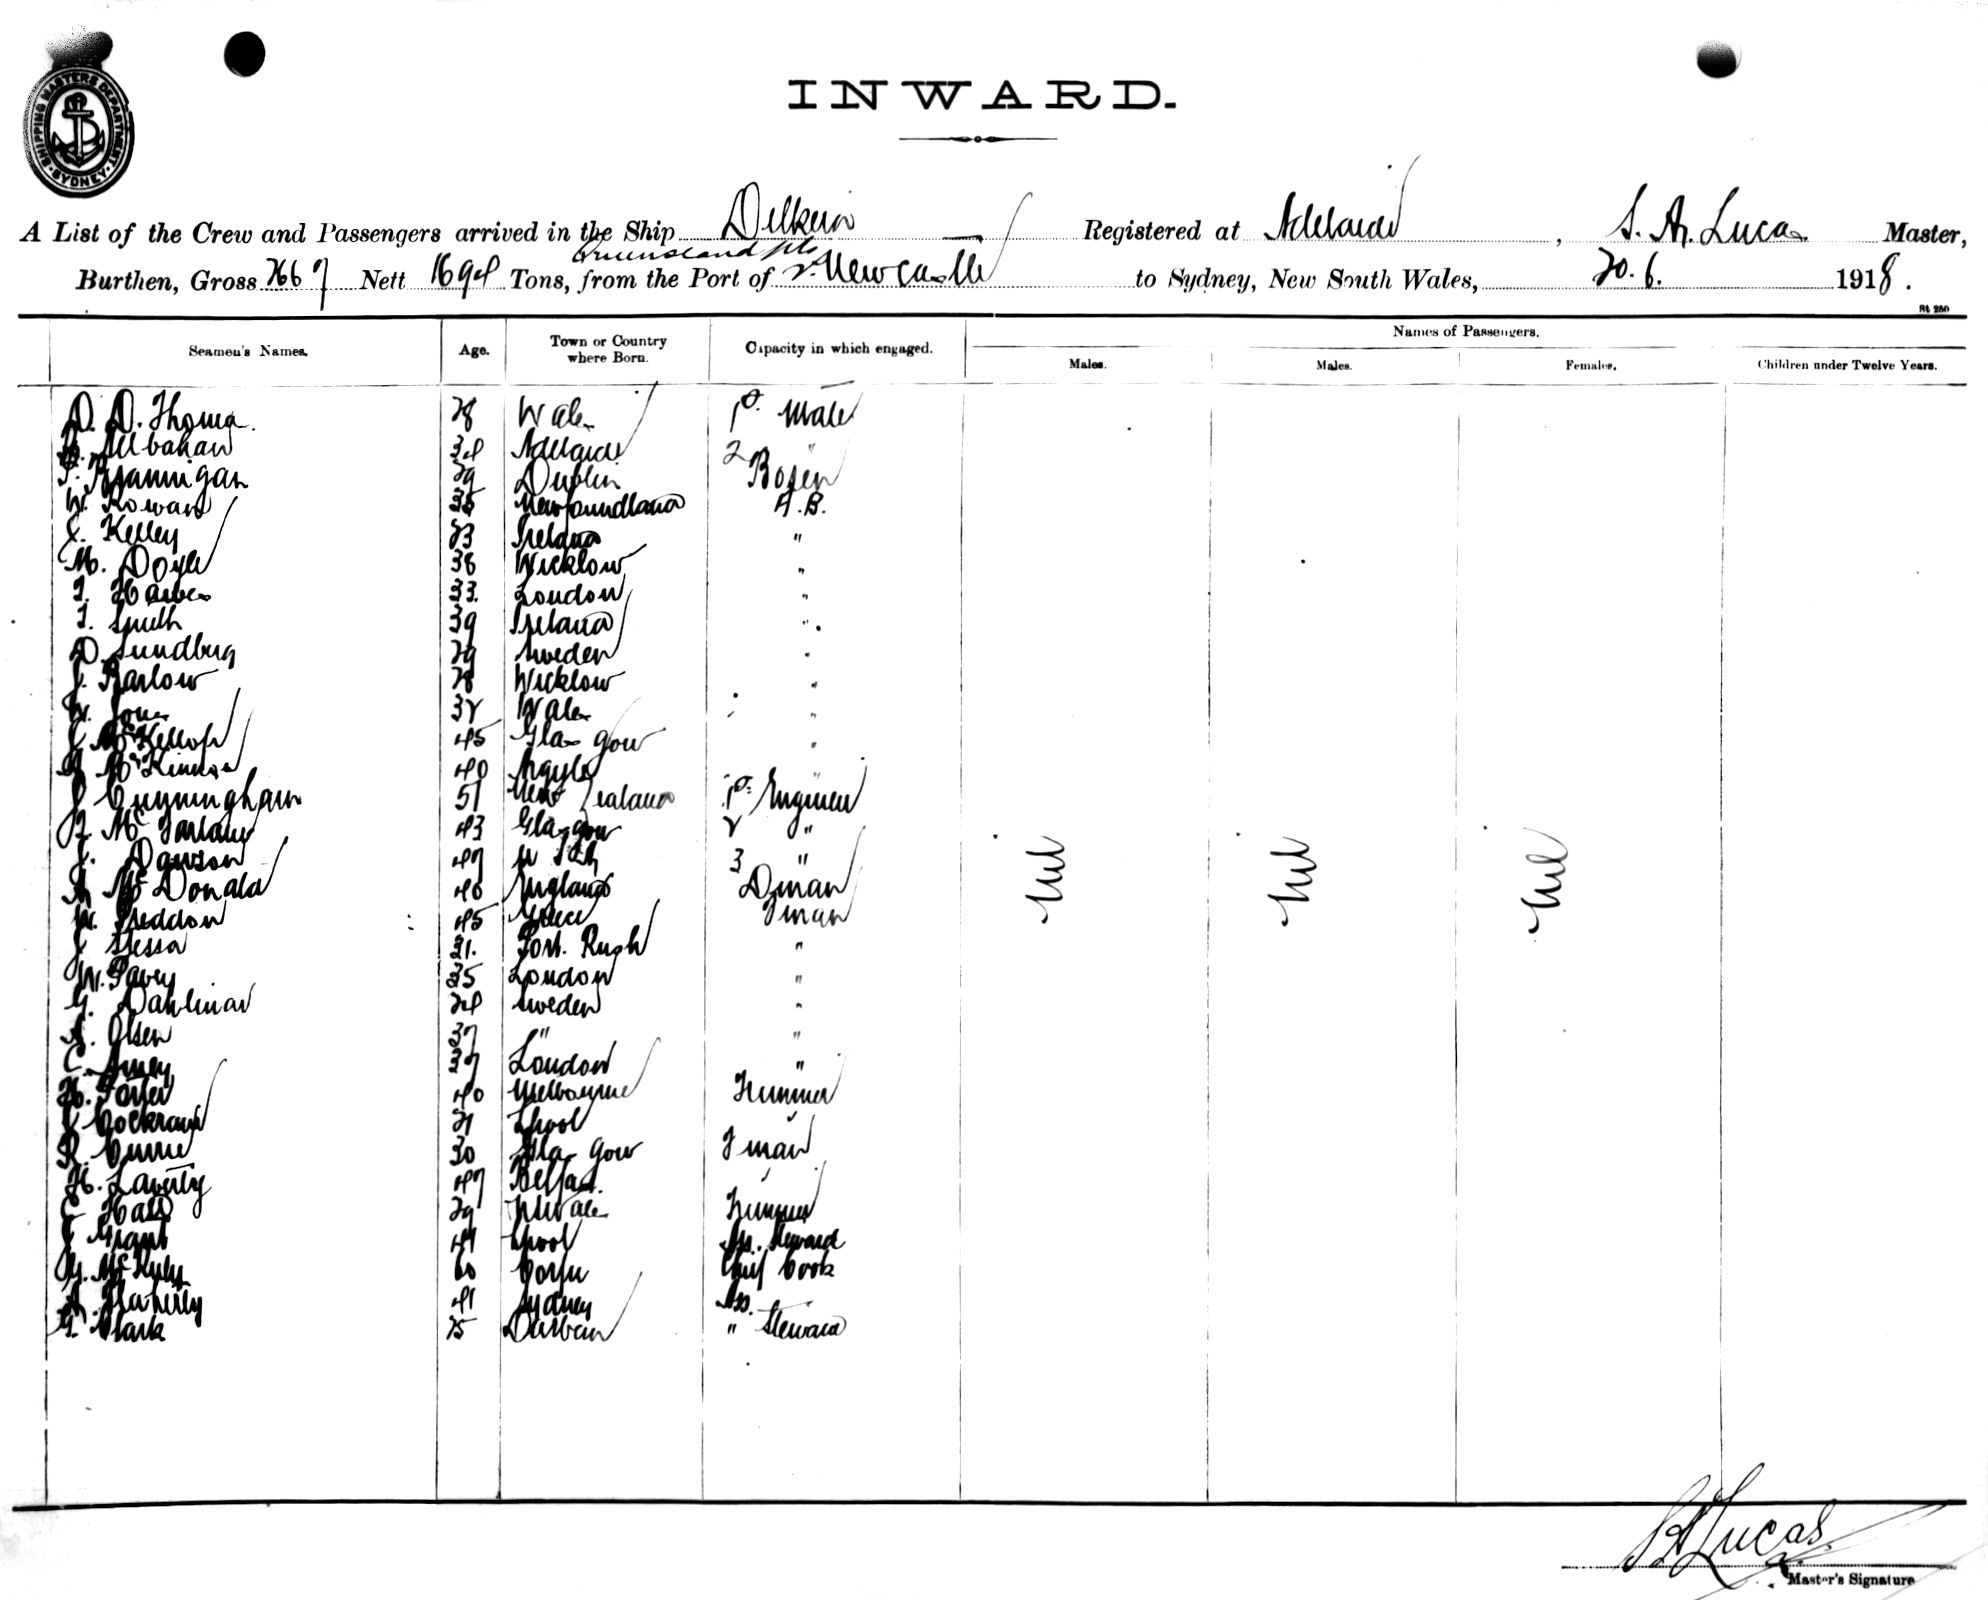 SHIPPING MASTERS DEPARTMENT
SYDNEY
INWARD.
A List of the Crew and Passengers arrived in the Ship Registered at Adelaide, S. A. Lucas Master,
Burthen, Gross 2667 Nett 1694 Tons, from the Port of Newcastle to Sydney, New South Wales, 20.6. 1918.
St 250
Seamen's Names. Age. Town or Country where Born. Capacity in which engaged. Names of Passengers.
Males. Males. Females. Children under Twelve Years.
D. D. Thomas 28 Wales 1st Mate
34 Adelaide 2 "
Brannigan 29 Dublin Bosen
W. Rowan 35 Newfoundland A.B.
J. Kelley 23 Ireland "
M. Doyle 38 Wicklow "
T. 33. London "
T. Smith 39 Ireland "
D. Sundberg 29 Sweden "
J. Barlow 28 Wicklow "
W. Jones 32 Wales "
J McKellop 45 Glasgow "
McKinnon 40 Argyle "
J Cunningham 51 New Zealand 1st Engineer
J. McFarlane 43 Glasgow 2 "
J. Dawson 47 3 "
A McDonald 40 England Dman
W. Sneddon 45 Greece Fman
J Stessa 21. Port Rush "
W. Pavey 35 London "
G. Dahlman 24 Sweden "
A. Olsen 37 " "
C. Amey 37 London "
H. Porter 40 Melbourne Trimmer
J Cockram 21 Lpool "
R. Currie 30 Glasgow Fman
H. Laverty 47 Belfast. "
C Hall 29 NSWales Trimmer
J Grant 41 Lpool Steward
60 Corfu Chief Cook
A. Flaherty 41 Sydney Ass.
G. Clark 25 Durban " Steward
Nil Nil Nil
S A Lucas.
Master's Signature